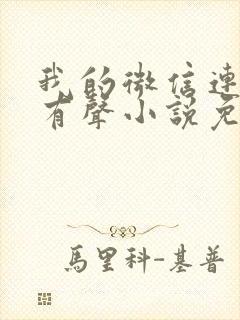 我的微信連
有聲小說免
馬里科-基普